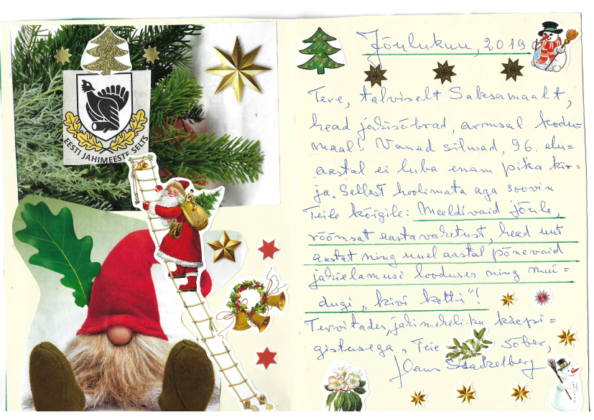 EESTI JAHIMEESTE SELTS
Jõulukuu, 2019
Tere, talviselt Saksamaalt,
head jahisõbrad, armsal kodu=
maal! Vanad silmad, 96. elu=
aastal ei luba enam pika kir=
ja. Sellest hoolimata aga soovin
Teile kõigile: Meeldivaid jõule,
rõõmsat aastavahetust, head uut
aastat ning uuel aastal põnevaid
jahielamusi looduses ning mui=
dugi „kivi kotti"!
Tervitades, jahimeheliku käepi=
gistusega, Teie sõber,
Stackelberg